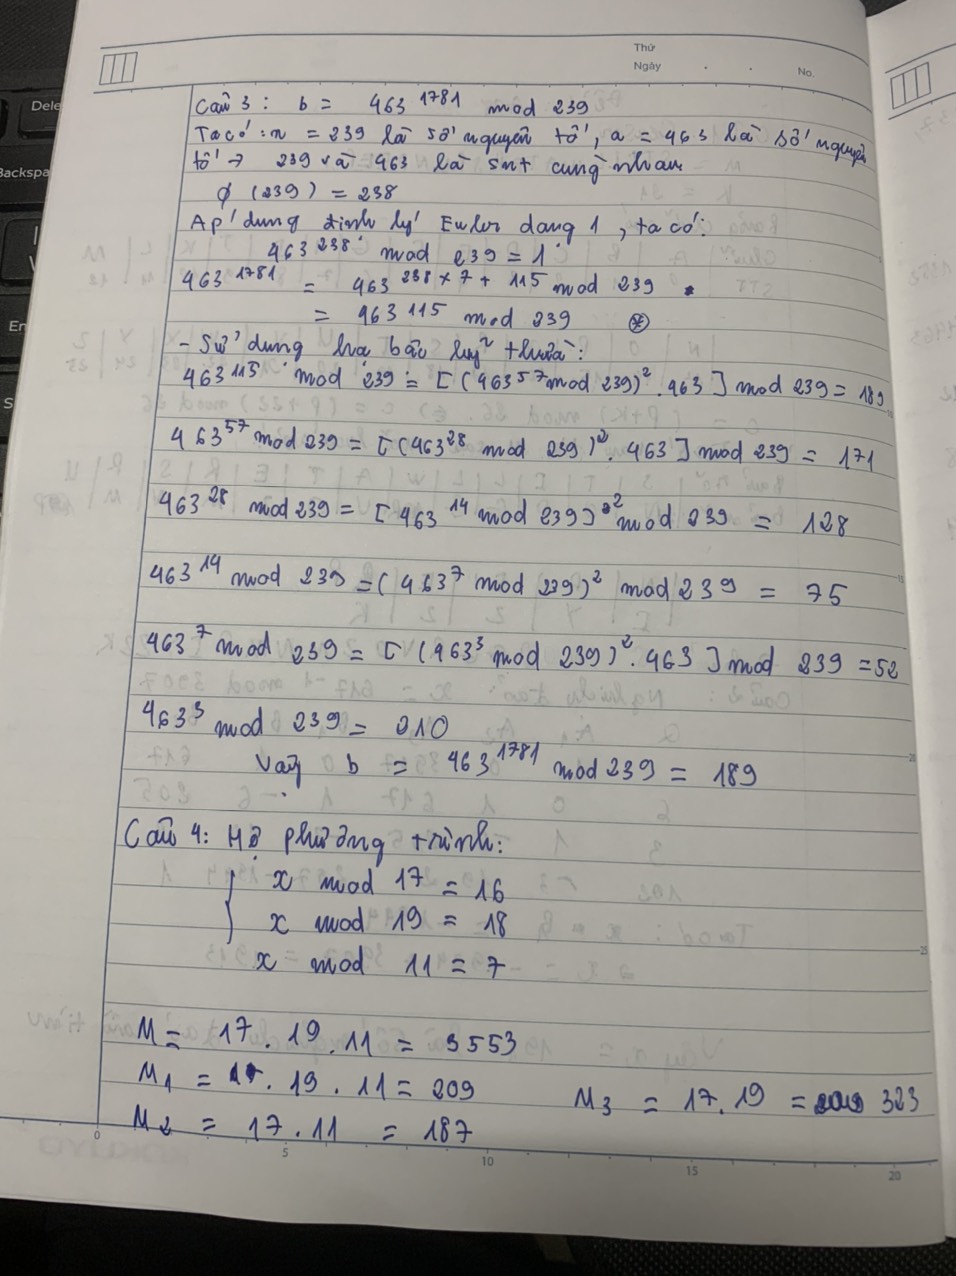 Thứ
Ngày . . No.
Câu 3 : b = 463^1781 mod 239
Ta có : n = 239 là số nguyên tố, a = 463 là số nguyên
tố → 239 và 463 là snt cùng nhau
ϕ (239) = 238
Áp dụng định lý Euler dạng 1, ta có:
463^238 mod 239 = 1
463^1781 = 463^238×7 + 115 mod 239
= 463^115 mod 239 ⊛
- Sử dụng hạ bậc luỹ thừa:
463^115 mod 239 = [(463^57 mod 239)^2 . 463] mod 239 = 189
463^57 mod 239 = [(463^28 mod 239)^2 . 463] mod 239 = 171
463^28 mod 239 = [463^14 mod 239)^2 mod 239 = 128
463^14 mod 239 = (463^7 mod 239)^2 mod 239 = 75
463^7 mod 239 = [(463^3 mod 239)^2 . 463] mod 239 = 52
463^3 mod 239 = 210
Vậy b = 463^1781 mod 239 = 189
Câu 4: Hệ phương trình:
x mod 17 = 16
x mod 19 = 18
x mod 11 = 7
M = 17 . 19 . 11 = 3553
M1 = 19 . 11 = 209 M3 = 17 . 19 = 323
M2 = 17 . 11 = 187
0 5 10 15 20
Dele
Backspa
En
S